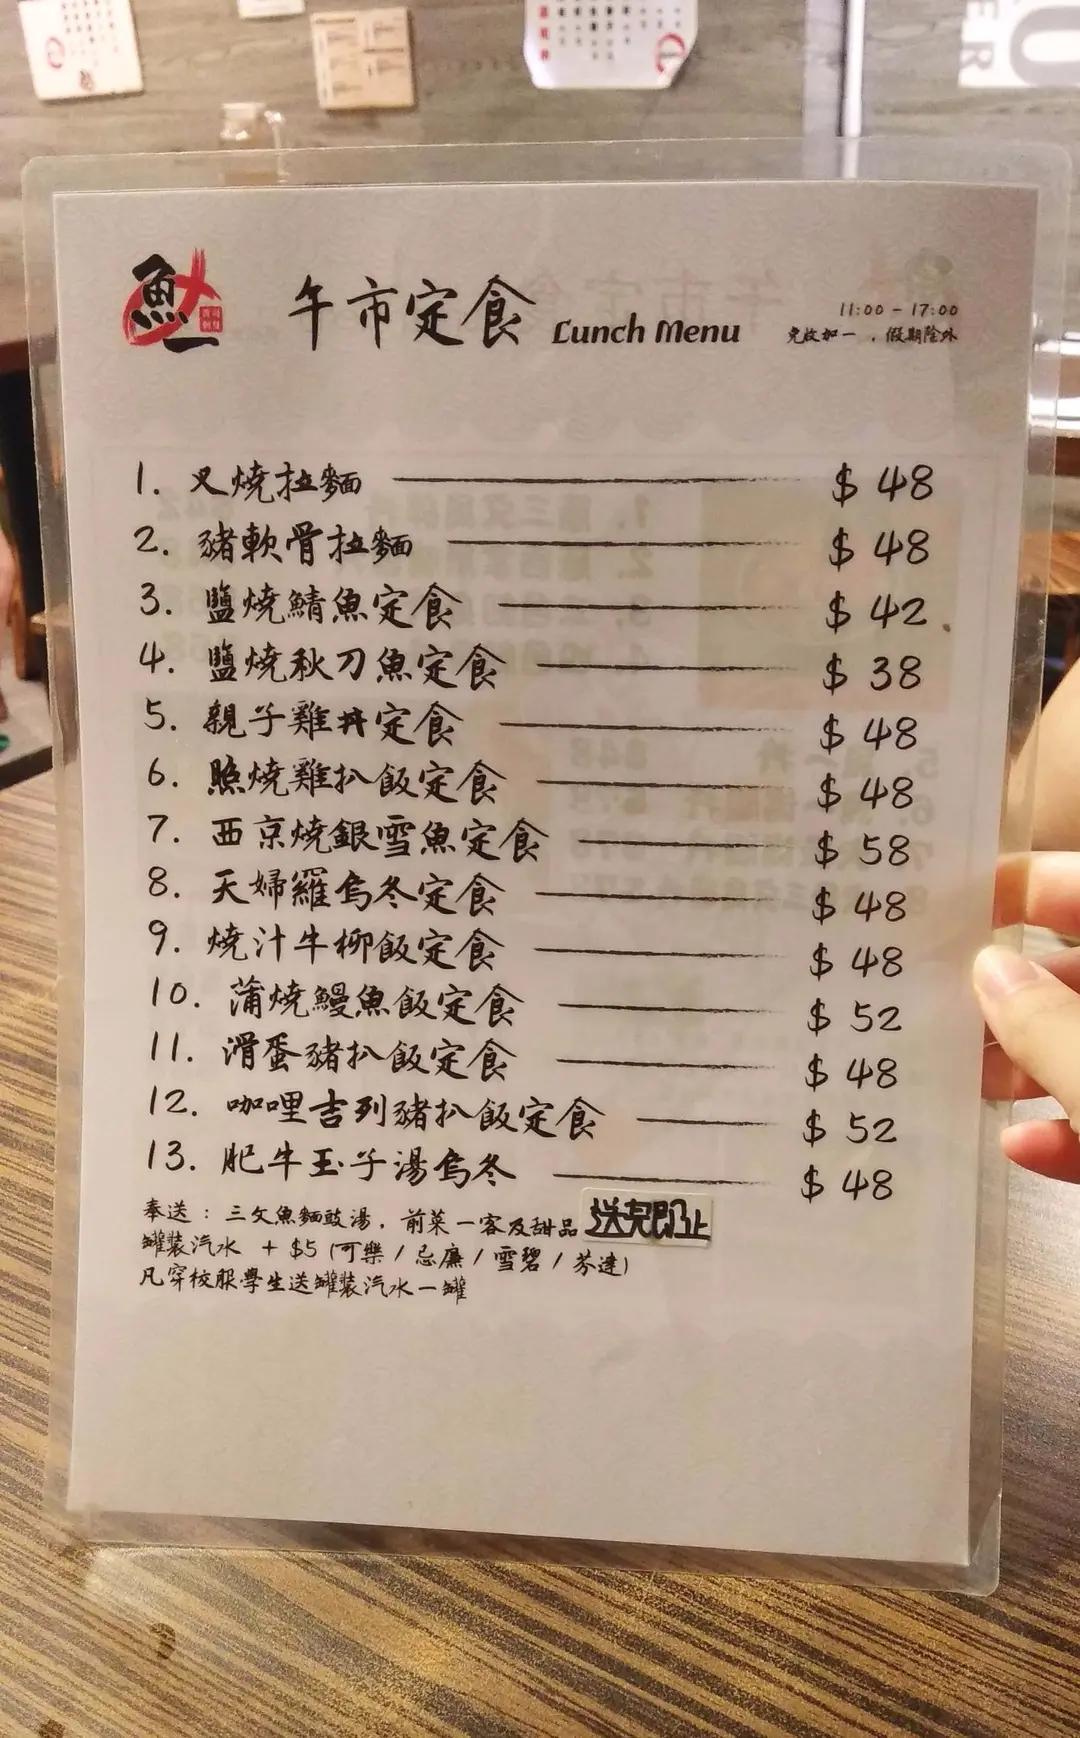 魚一
午市定食 Lunch Menu
11:00 - 17:00
免收加一，假期除外
1. 叉燒拉麵 $ 48
2. 豬軟骨拉麵 $ 48
3. 鹽燒鯖魚定食 $ 42
4. 鹽燒秋刀魚定食 $ 38
5. 親子雞丼定食 $ 48
6. 照燒雞扒飯定食 $ 48
7. 西京燒銀雪魚定食 $ 58
8. 天婦羅烏冬定食 $ 48
9. 燒汁牛柳飯定食 $ 48
10. 蒲燒鰻魚飯定食 $ 52
11. 滑蛋豬扒飯定食 $ 48
12. 咖哩吉列豬扒飯定食 $ 52
13. 肥牛玉子湯烏冬 $ 48
奉送：三文魚麵豉湯，前菜一客及甜品 送完即止
罐裝汽水 + $5 (可樂 / 忌廉 / 雪碧 / 芬達)
凡穿校服學生送罐裝汽水一罐